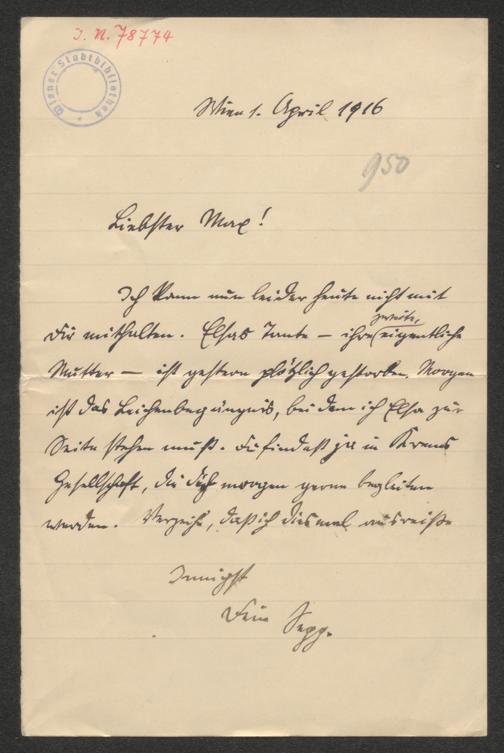 J. N. 78774
Wiener Stadtbibliothek
Wien 1. April 1916
950
Liebster Max!
Ich kann nun leider heute nicht mit
Dir mithalten. Elsas Tante – ihre zweite, eigentliche
Mutter – ist gestern plötzlich gestorben. Morgen
ist das Leichenbegängnis, bei dem ich Elsa zur
Seite stehen muß. Du findest ja in Krems
Gesellschaft, die Dich morgen gerne begleiten
werden. Verzeihe, daß ich diesmal ausreiße
Innigst
Dein Sepp.